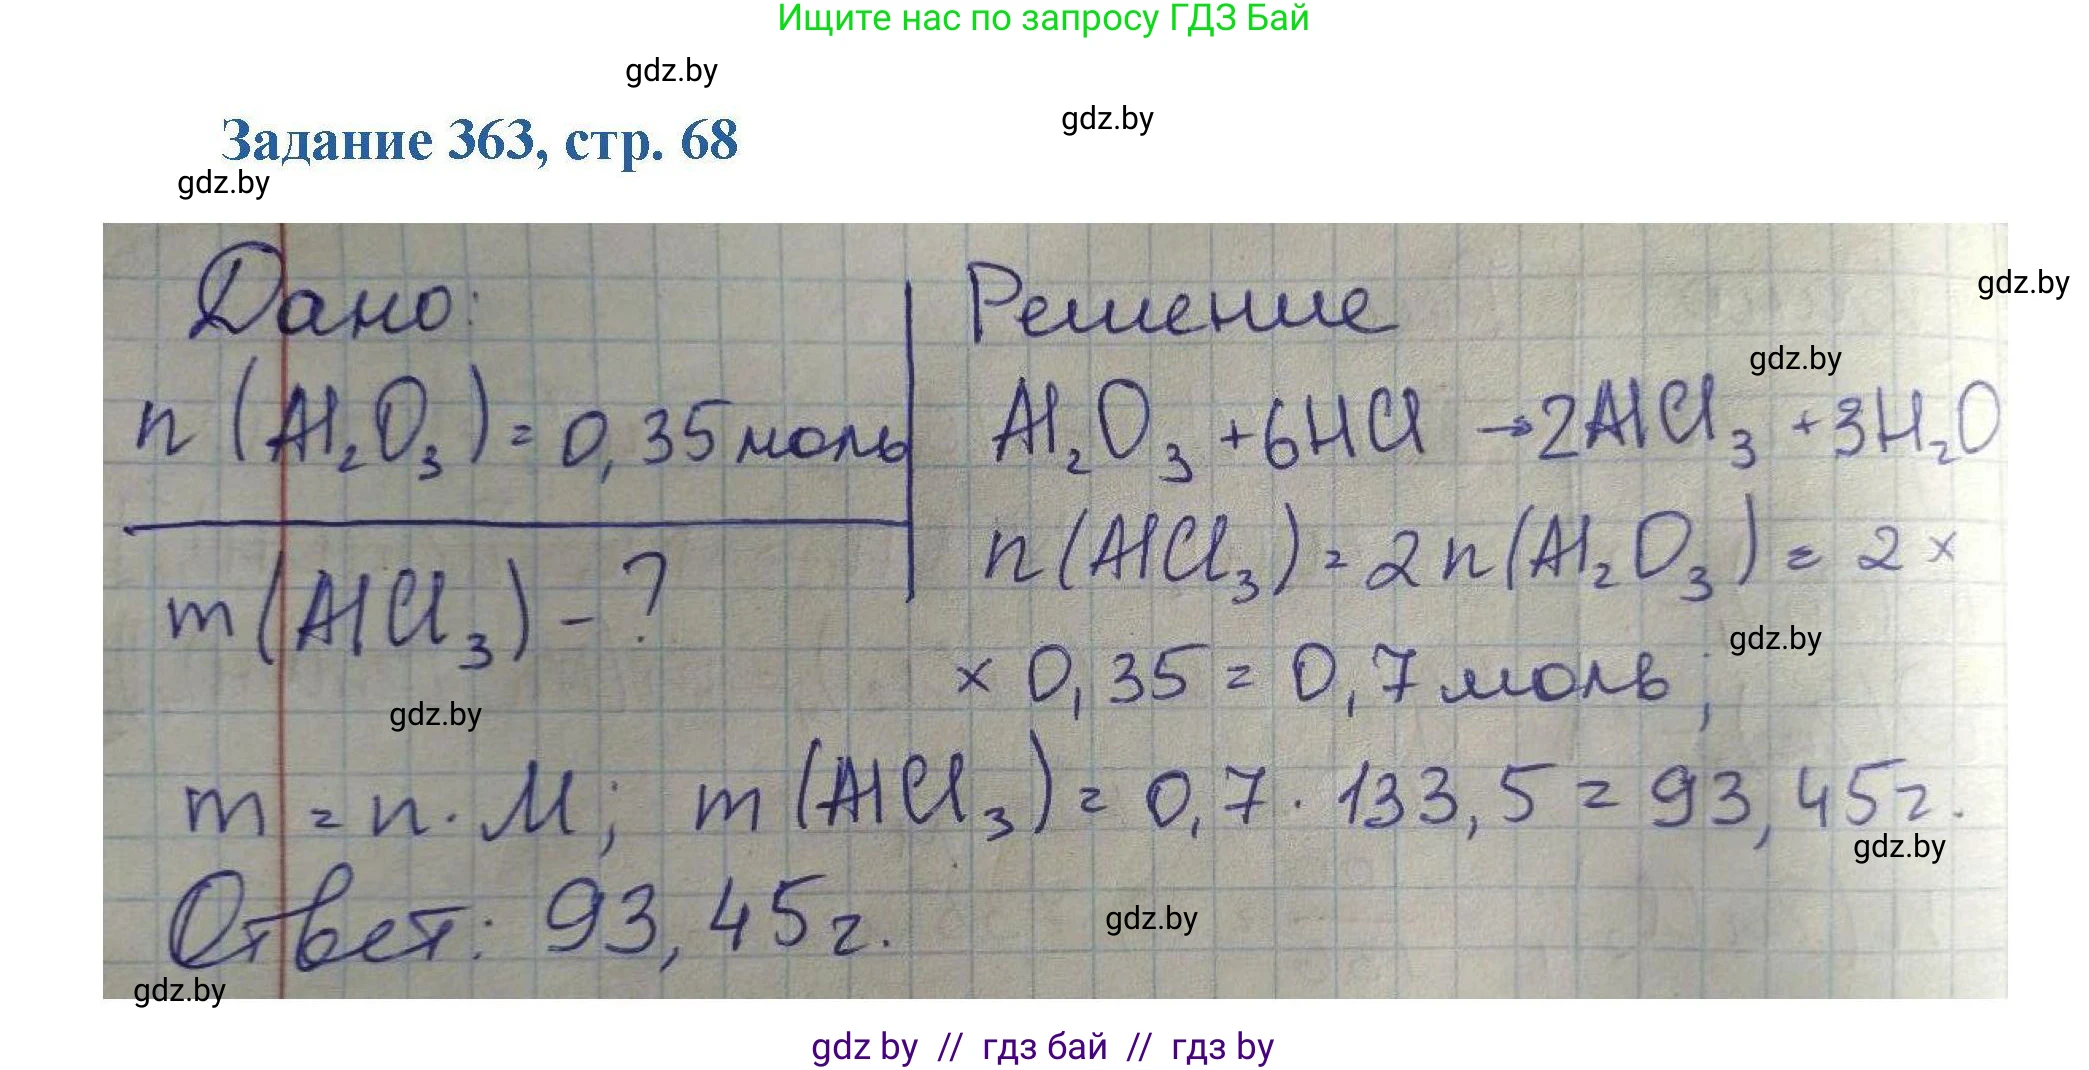 Ищите нас по запросу ГДЗ Бай
gdz.by
gdz.by
Задание 363, стр. 68
gdz.by
Дано:
n(Al₂O₃) = 0,35 моль
m(AlCl₃) - ?
Решение
gdz.by
gdz.by
Al₂O₃ + 6HCl → 2AlCl₃ + 3H₂O
n(AlCl₃) = 2n(Al₂O₃) = 2 ×
gdz.by
× 0,35 = 0,7 моль;
gdz.by
m = n · M; m(AlCl₃) = 0,7 · 133,5 = 93,45 г.
gdz.by
Ответ: 93,45 г.
gdz.by
gdz.by
gdz by // гдз бай // гдз by